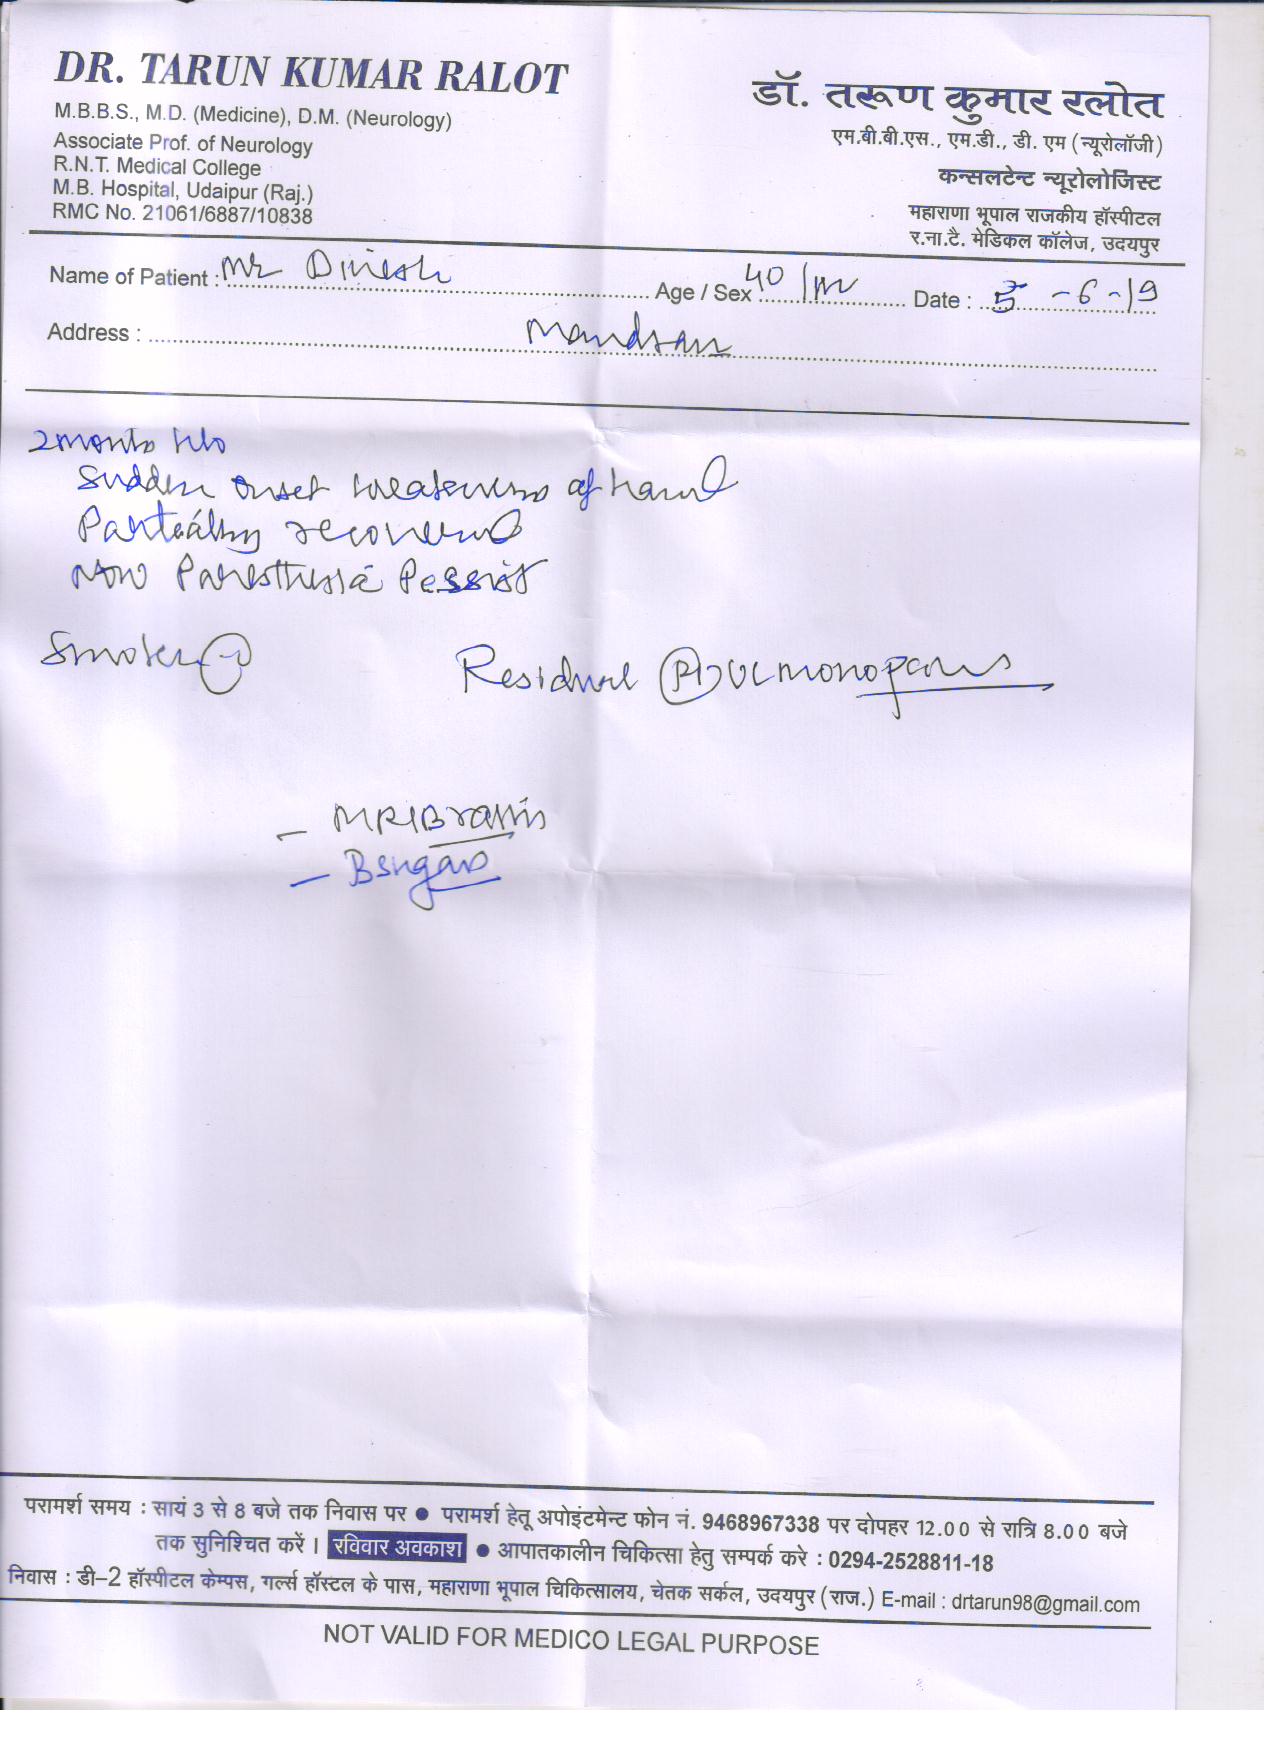 DR. TARUN KUMAR RALOT
M.B.B.S., M.D. (Medicine), D.M. (Neurology)
Associate Prof. of Neurology
R.N.T. Medical College
M.B. Hospital, Udaipur (Raj.)
RMC No. 21061/6887/10838
डॉ. तरूण कुमार रलोत
एम.बी.बी.एस., एम.डी., डी. एम (न्यूरोलॉजी)
कन्सलटेन्ट न्यूरोलोजिस्ट
महाराणा भूपाल राजकीय हॉस्पीटल
र.ना.टै. मेडिकल कॉलेज, उदयपुर
Name of Patient : Mr Dinesh Age / Sex 40/M Date : 5-6-19
Address : Mandsaur
2 months h/o
Sudden onset weakness of hand
Partially recovered
Now Paresthesia Persist
Smoker
Residual Rt UL monoparesis
- MRI Brain
- B sugar
परामर्श समय : सायं 3 से 8 बजे तक निवास पर ● परामर्श हेतू अपोइंटमेन्ट फोन नं. 9468967338 पर दोपहर 12.00 से रात्रि 8.00 बजे
तक सुनिश्चित करें। रविवार अवकाश ● आपातकालीन चिकित्सा हेतु सम्पर्क करे : 0294-2528811-18
निवास : डी–2 हॉस्पीटल केम्पस, गर्ल्स हॉस्टल के पास, महाराणा भूपाल चिकित्सालय, चेतक सर्कल, उदयपुर (राज.) E-mail : drtarun98@gmail.com
NOT VALID FOR MEDICO LEGAL PURPOSE